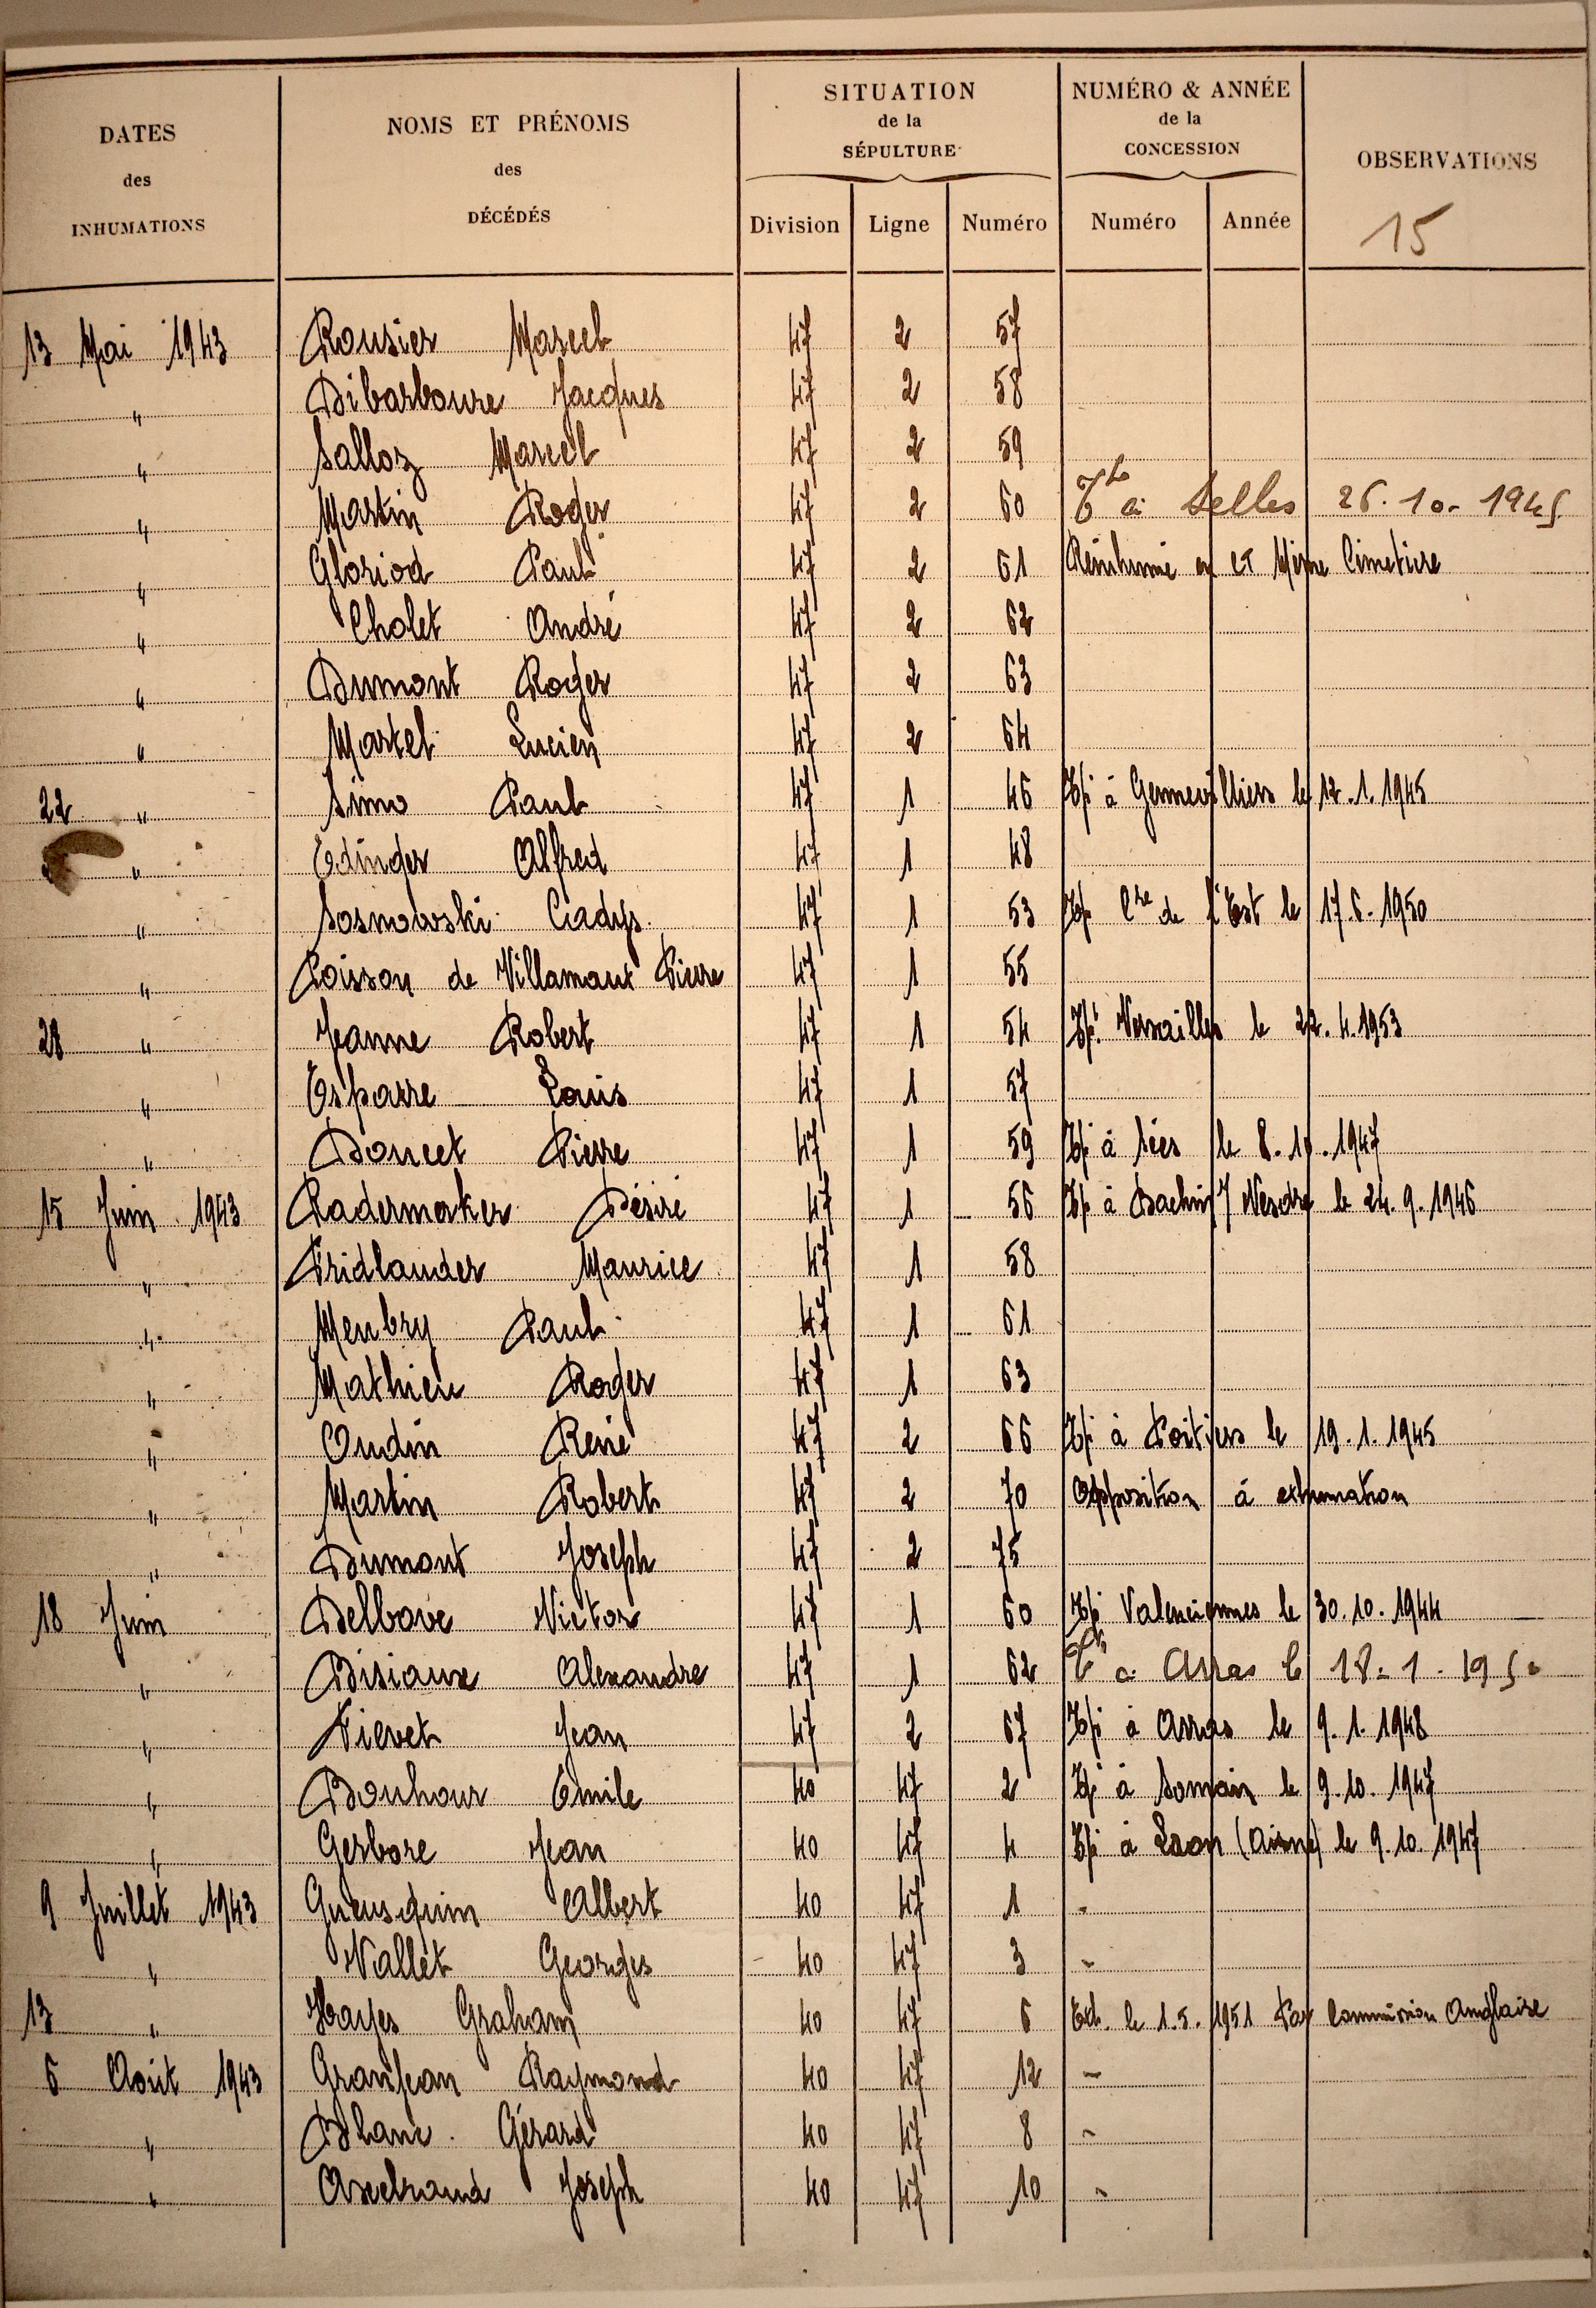 DATES des INHUMATIONS
NOMS ET PRÉNOMS des DÉCÉDÉS
SITUATION de la SÉPULTURE
NUMÉRO & ANNÉE de la CONCESSION
OBSERVATIONS
Division Ligne Numéro Numéro Année 15
13 Mai 1943 Rousier Marcel 47 2 57
" Dibarboure Jacques 47 2 58
" Salloz Marcel 47 2 59
" Martin Roger 47 2 60 à Selles 26.10.1945
" Gloriod Paul 47 2 61 Réinhumé en et Même Cimetière
" Cholet André 47 2 62
" Dumont Roger 47 2 63
" Martel Lucien 47 2 64
22 " Simo Paul 47 1 46 Tpé à Gennevilliers le 12.1.1945
" Edinger Alfred 47 1 48
" Sosnowski Cadys. 47 1 53 Tpé Cre de l'Est le 17.6.1950
" Poisson de Villamaux Pierre 47 1 55
28 " Jeanne Robert 47 1 54 Tpé Versailles le 22.4.1953
" Esparre Louis 47 1 57
" Doucet Pierre 47 1 59 Tpé à Sées le 8.10.1947
15 Juin 1943 Radermerker Désiré 47 1 56 Tpé à le 24.9.1946
" Fridlander Maurice 47 1 58
" Menbry Paul 47 1 61
" Mathieu Roger 47 1 63
" Oudin René 47 2 66 Tpé à Poitiers le 19.1.1945
" Martin Robert 47 2 70 Opposition à exhumation
" Dumont Joseph 47 2 75
18 Juin Delbove Victor 47 1 60 Tpé Valenciennes le 30.10.1944
" Disiaux Alexandre 47 1 62 à Arras le 18-1-1950
" Vievet Jean 47 2 67 Tpé à Arras le 9.1.1948
" Bonhour Emile 40 47 2 Tpé à Somain le 9.10.1947
" Gerbore Jean 40 47 4 Tpé à Laon (Aisne) le 9.10.1947
9 Juillet 1943 Gueusquin Albert 40 47 1 -
" Vallet Georges 40 47 3 -
13 " Hayes Graham 40 47 6 Exh. le 1.5.1951 Par Commission Anglaise
6 Août 1943 Granjean Raymond 40 47 12 -
" Blanc. Gérard 40 47 8 -
" Axelroud Joseph 40 47 10 -